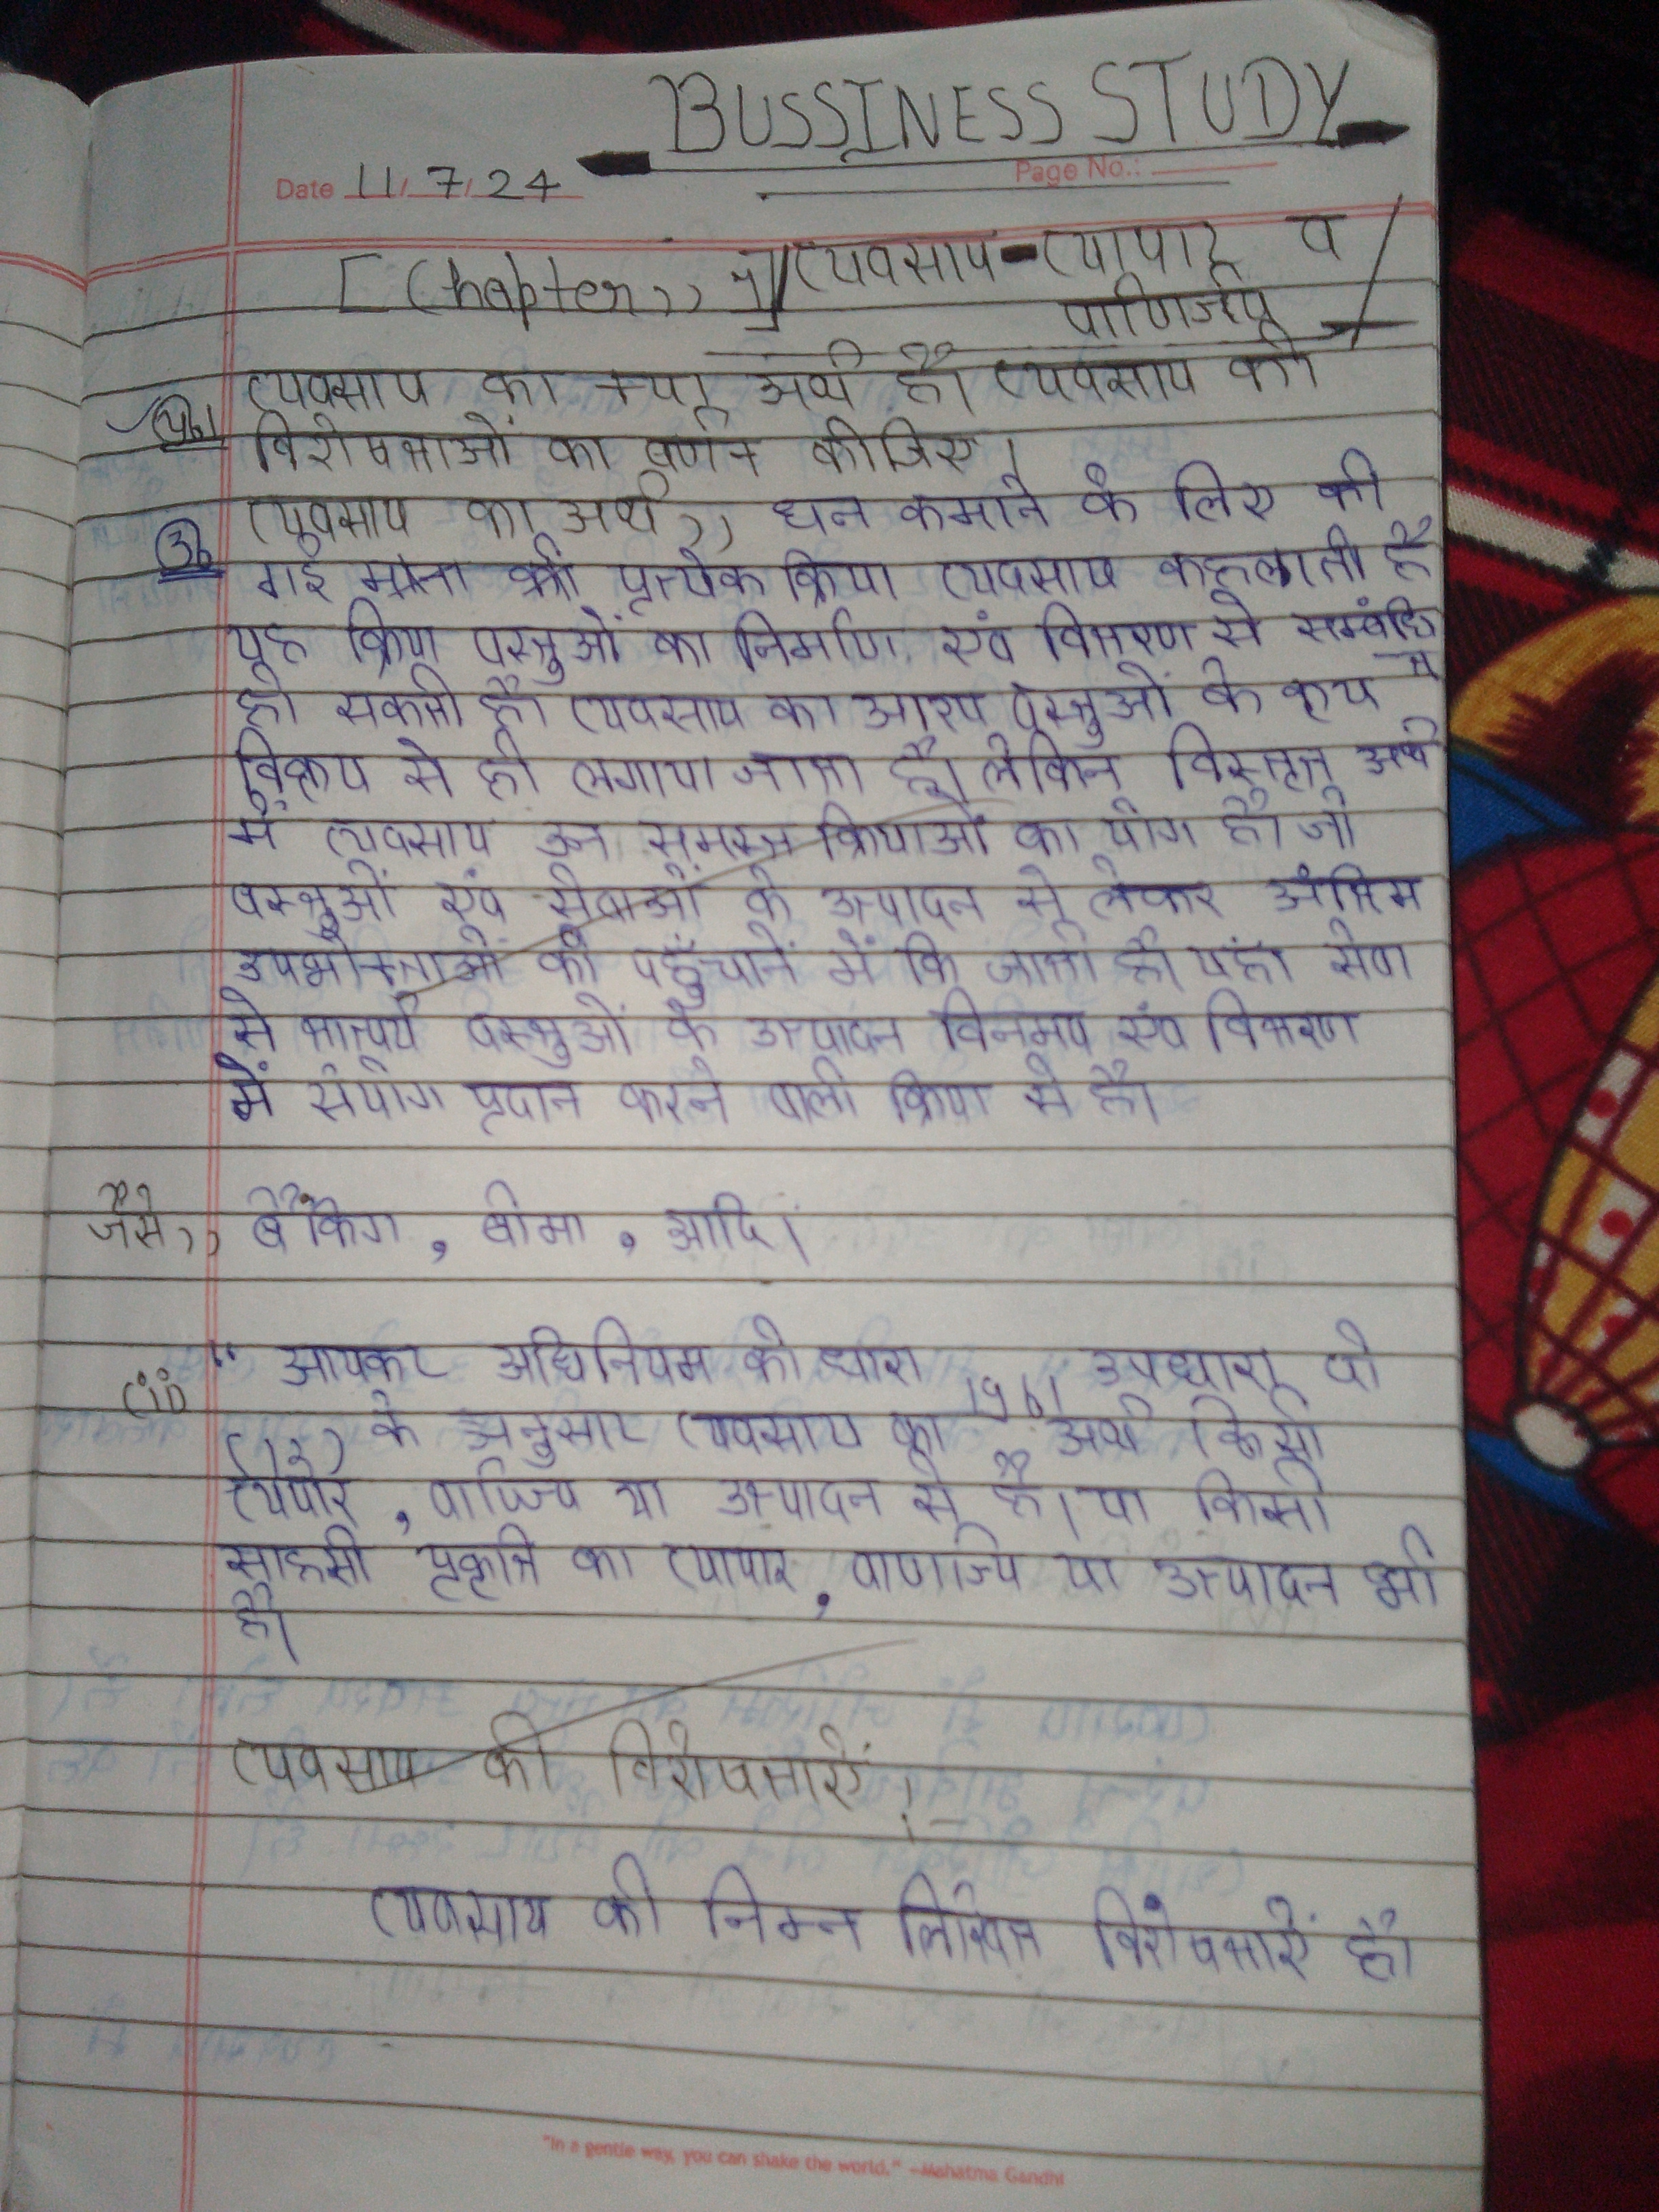 BUSSINESS STUDY
Page No.:
Date 11/7/24
[Chapter,, 1]// व्यवसाय-व्यापार व
वाणिज्य
व्यवसाय का क्या अर्थ है। व्यवसाय की
प्र०1 विशेषताओं का वर्णन कीजिए।
उ० व्यवसाय का अर्थ,, धन कमाने के लिए की
गई की प्रत्येक क्रिया व्यवसाय कहलाती है
यह क्रिया वस्तुओं का निर्माण एवं वितरण से सम्बंधि
त
हो सकती है। व्यवसाय का आश्य वस्तुओं के क्रय
विक्रय से ही लगाया जाता है। लेकिन विस्तृत अर्थ
में व्यवसाय उन समस्त क्रियाओं का योग है। जो
वस्तुओं एवं सेवाओं के उत्पादन से लेकर अंतिम
उपभोक्ताओं को पहुँचाने में कि जाती है। यहां सेवा
से तात्पर्य वस्तुओं के उत्पादन विनमय एवं वितरण
में संयोग प्रदान करने वाली क्रिया से है।
जैसे,, बैंकिग, बीमा, आदि।
(ii) " आयकर अधिनियम की धारा 1961 उपधारा दो
(13) के अनुसार व्यवसाय का अर्थ किसी
व्यपार, वाणिज्य या उत्पादन से है। या किसी
साहसी प्रकृति का व्यापार, वाणिज्य या उत्पादन भी
है।
व्यवसाय की विशेषताएं :-
व्यवसाय की निम्न लिखित विशेषताएं है।
"In a gentle way, you can shake the world." —Mahatma Gandhi